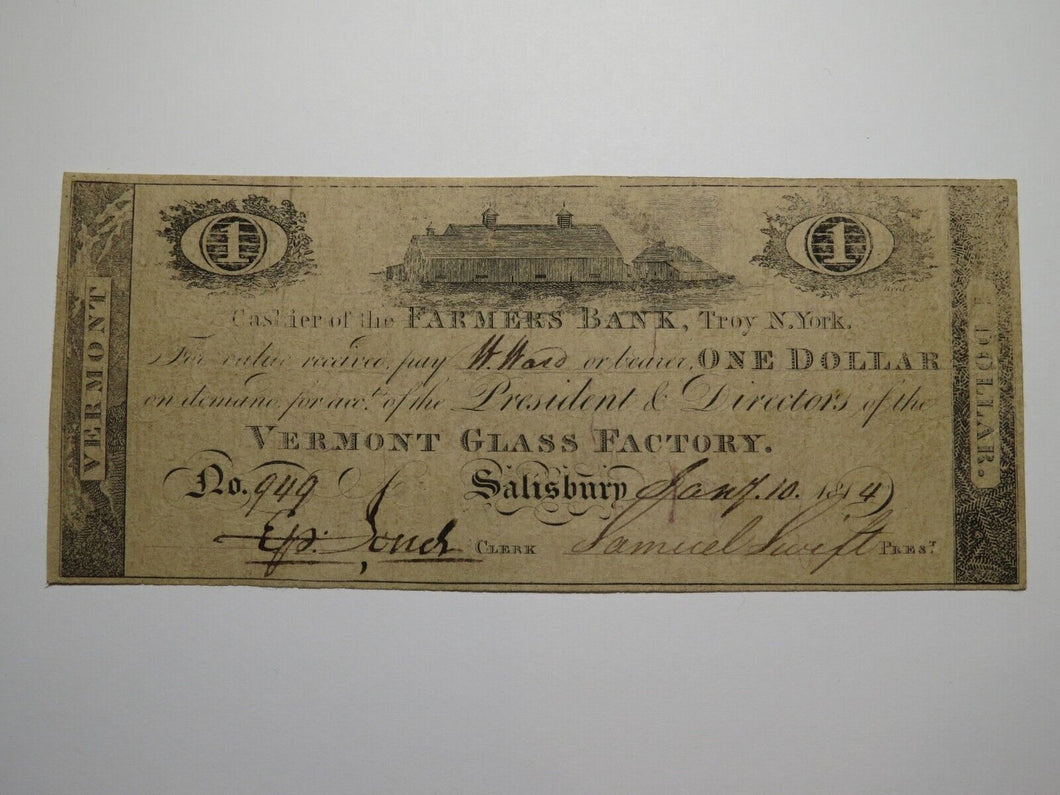 1
1
Reed
VERMONT
Cashier of the FARMERS BANK, Troy N. York.
For value received, pay W. Ward or bearer, ONE DOLLAR
on demand, for acct. of the President & Directors of the
VERMONT GLASS FACTORY.
No. 949 Salisbury Jany. 10. 1814
CLERK Samuel Swift PREST
DOLLAR.